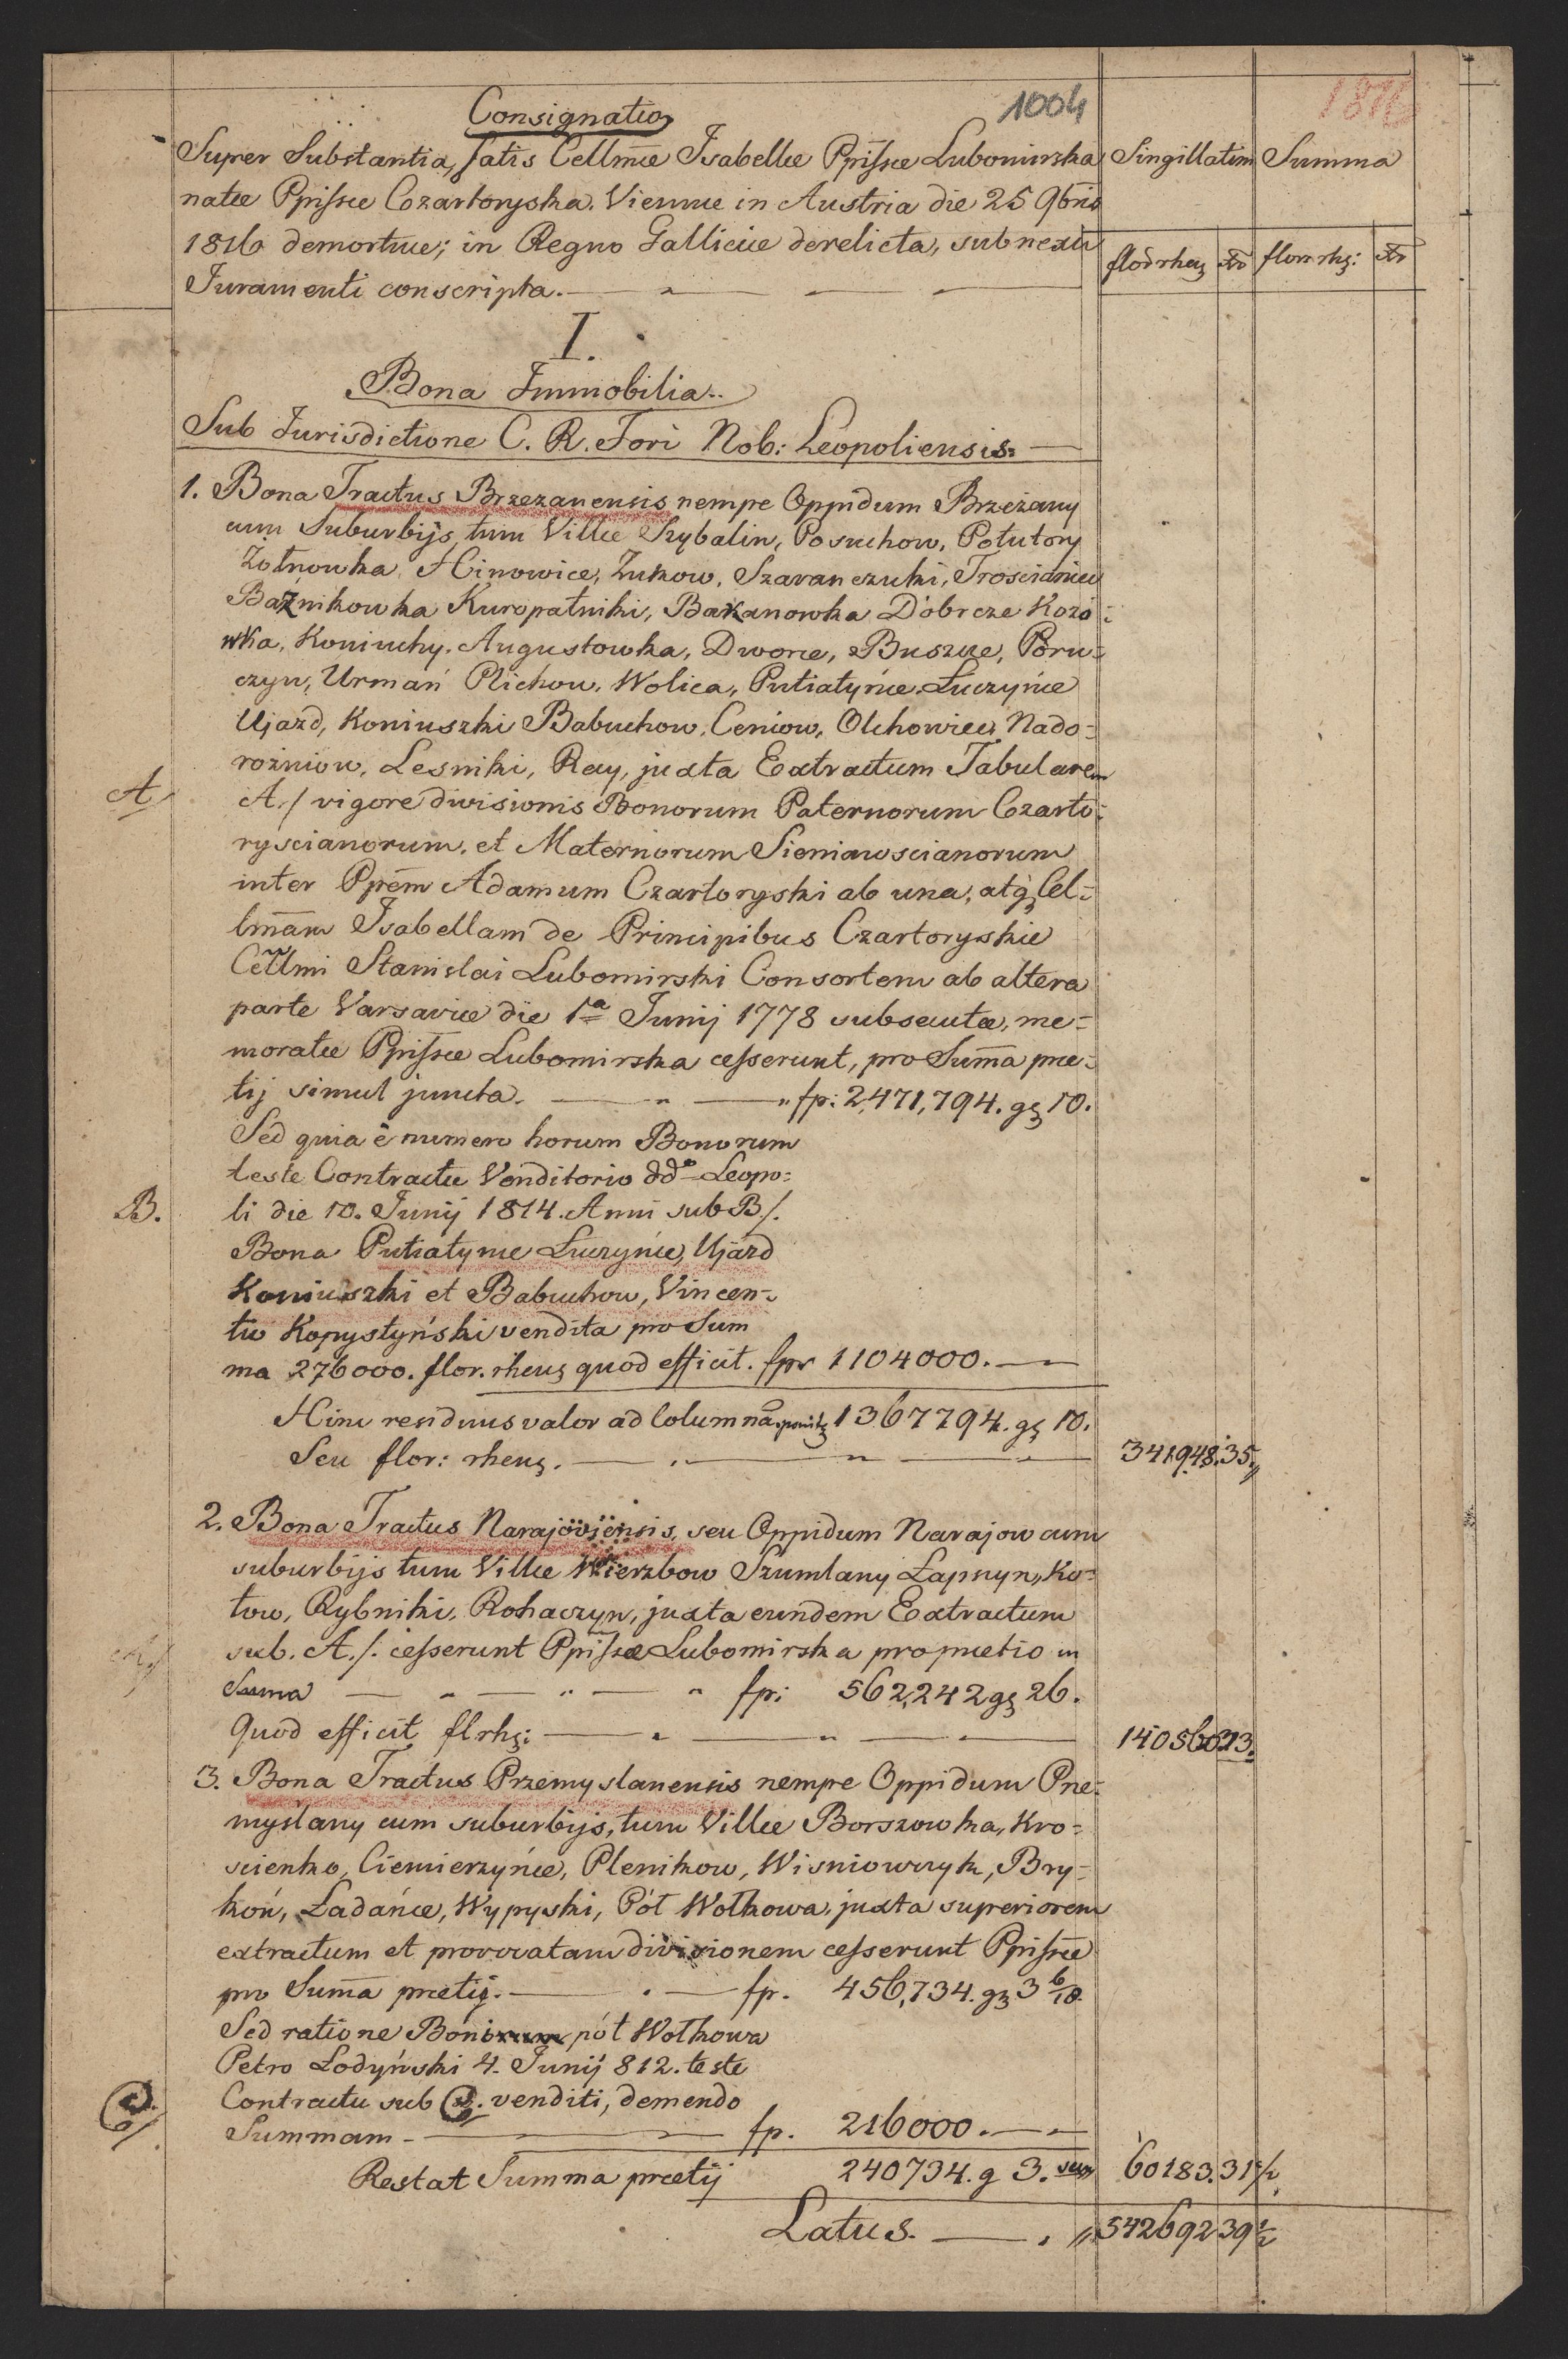 1004
1816
Consignatio
Super Substantia, fatis Cellmæ Isabellæ Ppissæ Lubomirska
Singillatim Summa
natæ Ppissæ Czartoryska. Viennæ in Austria die 25 9bris
1816 demortuæ; in Regno Galliciæ derelicta, sub nexu
flor rhen xr flor rhs: xr
Juramenti conscripta.
I.
Bona Immobilia..
Sub Jurisdictione C. R. Fori Nob: Leopoliensis.
1. Bona Tractus Brzezanensis nempe Oppidum Brzeżany
cum Suburbijs, tum Villæ Szybalin, Posuchow, Potutory
Żołnowka Hinowice, Zukow, Szaranczuki, Trościaniec
Baznikowka Kuropatniki, Bakanowka Dobrcze Kozo:
wka, Koniuchy. Augustowka, Dworce, Buszcze, Poru=
czyn, Urmań Plichow, Wolica, Putiatyńce, Łuczyńce
Ujazd, Koniuszki Babuchow, Ceniow, Olchowiec, Nado=
rożniow, Lesniki, Ray, juxta Extractum Tabularem
A/
A./ vigore divisionis Bonorum Paternorum Czarto=
ryscianorum, et Maternorum Sieniawscianorum
inter Ppem Adamum Czartoryski ab una, atq Cel=
lmam Isabellam de Principibus Czartoryskie
Cellmi Stanislai Lubomirski Consortem ab altera
parte Varsaviæ die 1a Junij 1778 subsecutæ, me=
moratæ Ppissæ Lubomirska cesserunt, pro Suma præ=
tij simul juncta. fp: 2,471,794. gs 10.
Sed quia e numero horum Bonorum
teste Contractu Venditorio ddo Leopo=
B.
li die 10. Junij 1814. Anni sub B/.
Bona Putiatynie Luczyńce, Ujazd
Koniuszki et Babuchow, Vincen=
tio Kopystyński vendita pro Sum
ma 276000. flor. rhens quod efficit. fpr 1104000.
Hinc residuus valor ad Columna ponitr 1367794. gs 10.
Seu flor: rhens. 341,948.35.
2. Bona Tractus Narajoviensis, seu Oppidum Narajow cum
suburbijs tum Villæ Wierzbow Szumlany Łapszyn, Ko=
tow, Rybniki, Rohaczyn, juxta eundem Extractum
A/
sub. A./. cesserunt Ppissæ Lubomirska pro prætio in
Suma fp: 562,242 gs 26.
Quod efficit flrhs: 140560.13.
3. Bona Tractus Przemyslanensis nempe Oppidum Prze=
myślany cum suburbijs, tum Villæ Borszowka, Kro=
scienko, Ciemierzyńce, Plenikow, Wisniowczyk, Bry=
koń, Ładańce, Wypyski, Pół Wołkowa, juxta superiorem
extractum et provocatam divisionem cesserunt Ppissæ
pro Suma prætij. fp. 456,734. gs 3 6/18.
Sed ratione Bonorum pół Wołkowa
Petro Łodyński 4. Junij 812. teste
C/.
Contractu sub C/. venditi, demendo
Summam fp. 216000.
Restat Summa prætij 240734. g 3. seu 60183.31 1/2
Latus. 542692 39 1/2